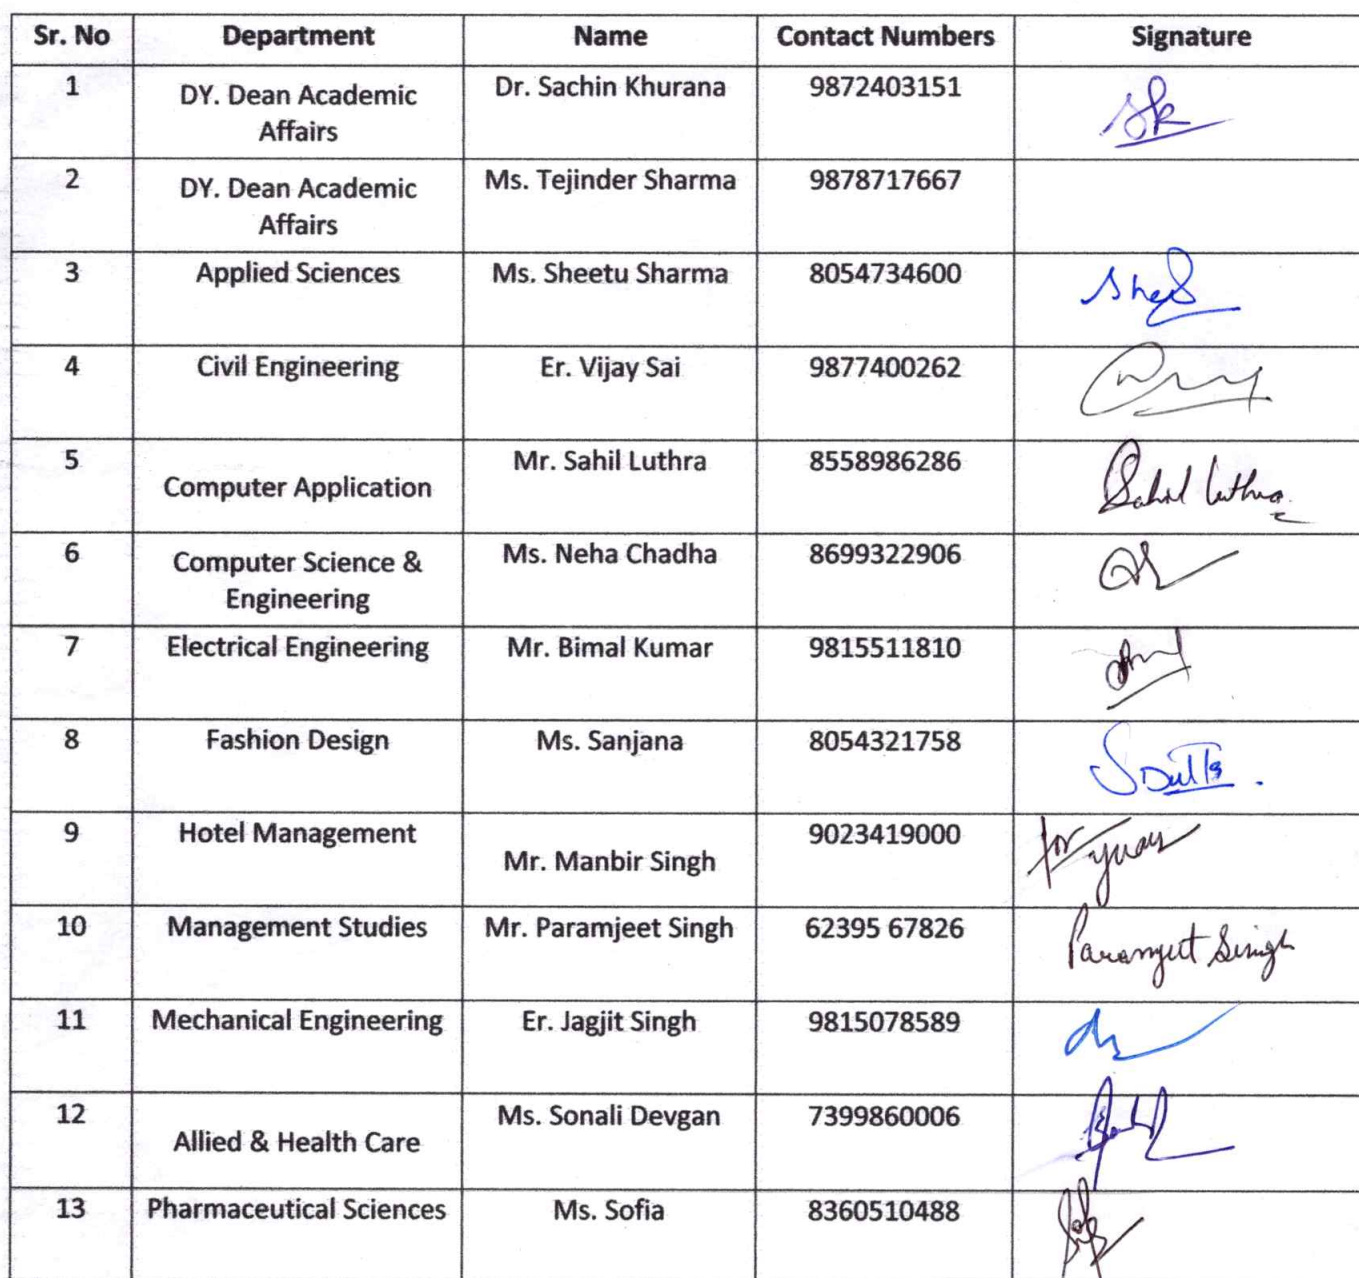 Sr. No Department Name Contact Numbers Signature
1 DY. Dean Academic Affairs Dr. Sachin Khurana 9872403151 SK
2 DY. Dean Academic Affairs Ms. Tejinder Sharma 9878717667
3 Applied Sciences Ms. Sheetu Sharma 8054734600
4 Civil Engineering Er. Vijay Sai 9877400262
5 Computer Application Mr. Sahil Luthra 8558986286 Sahil Luthra
6 Computer Science & Engineering Ms. Neha Chadha 8699322906
7 Electrical Engineering Mr. Bimal Kumar 9815511810
8 Fashion Design Ms. Sanjana 8054321758 SDutta.
9 Hotel Management Mr. Manbir Singh 9023419000 for
10 Management Studies Mr. Paramjeet Singh 62395 67826 Paramjeet Singh
11 Mechanical Engineering Er. Jagjit Singh 9815078589
12 Allied & Health Care Ms. Sonali Devgan 7399860006
13 Pharmaceutical Sciences Ms. Sofia 8360510488